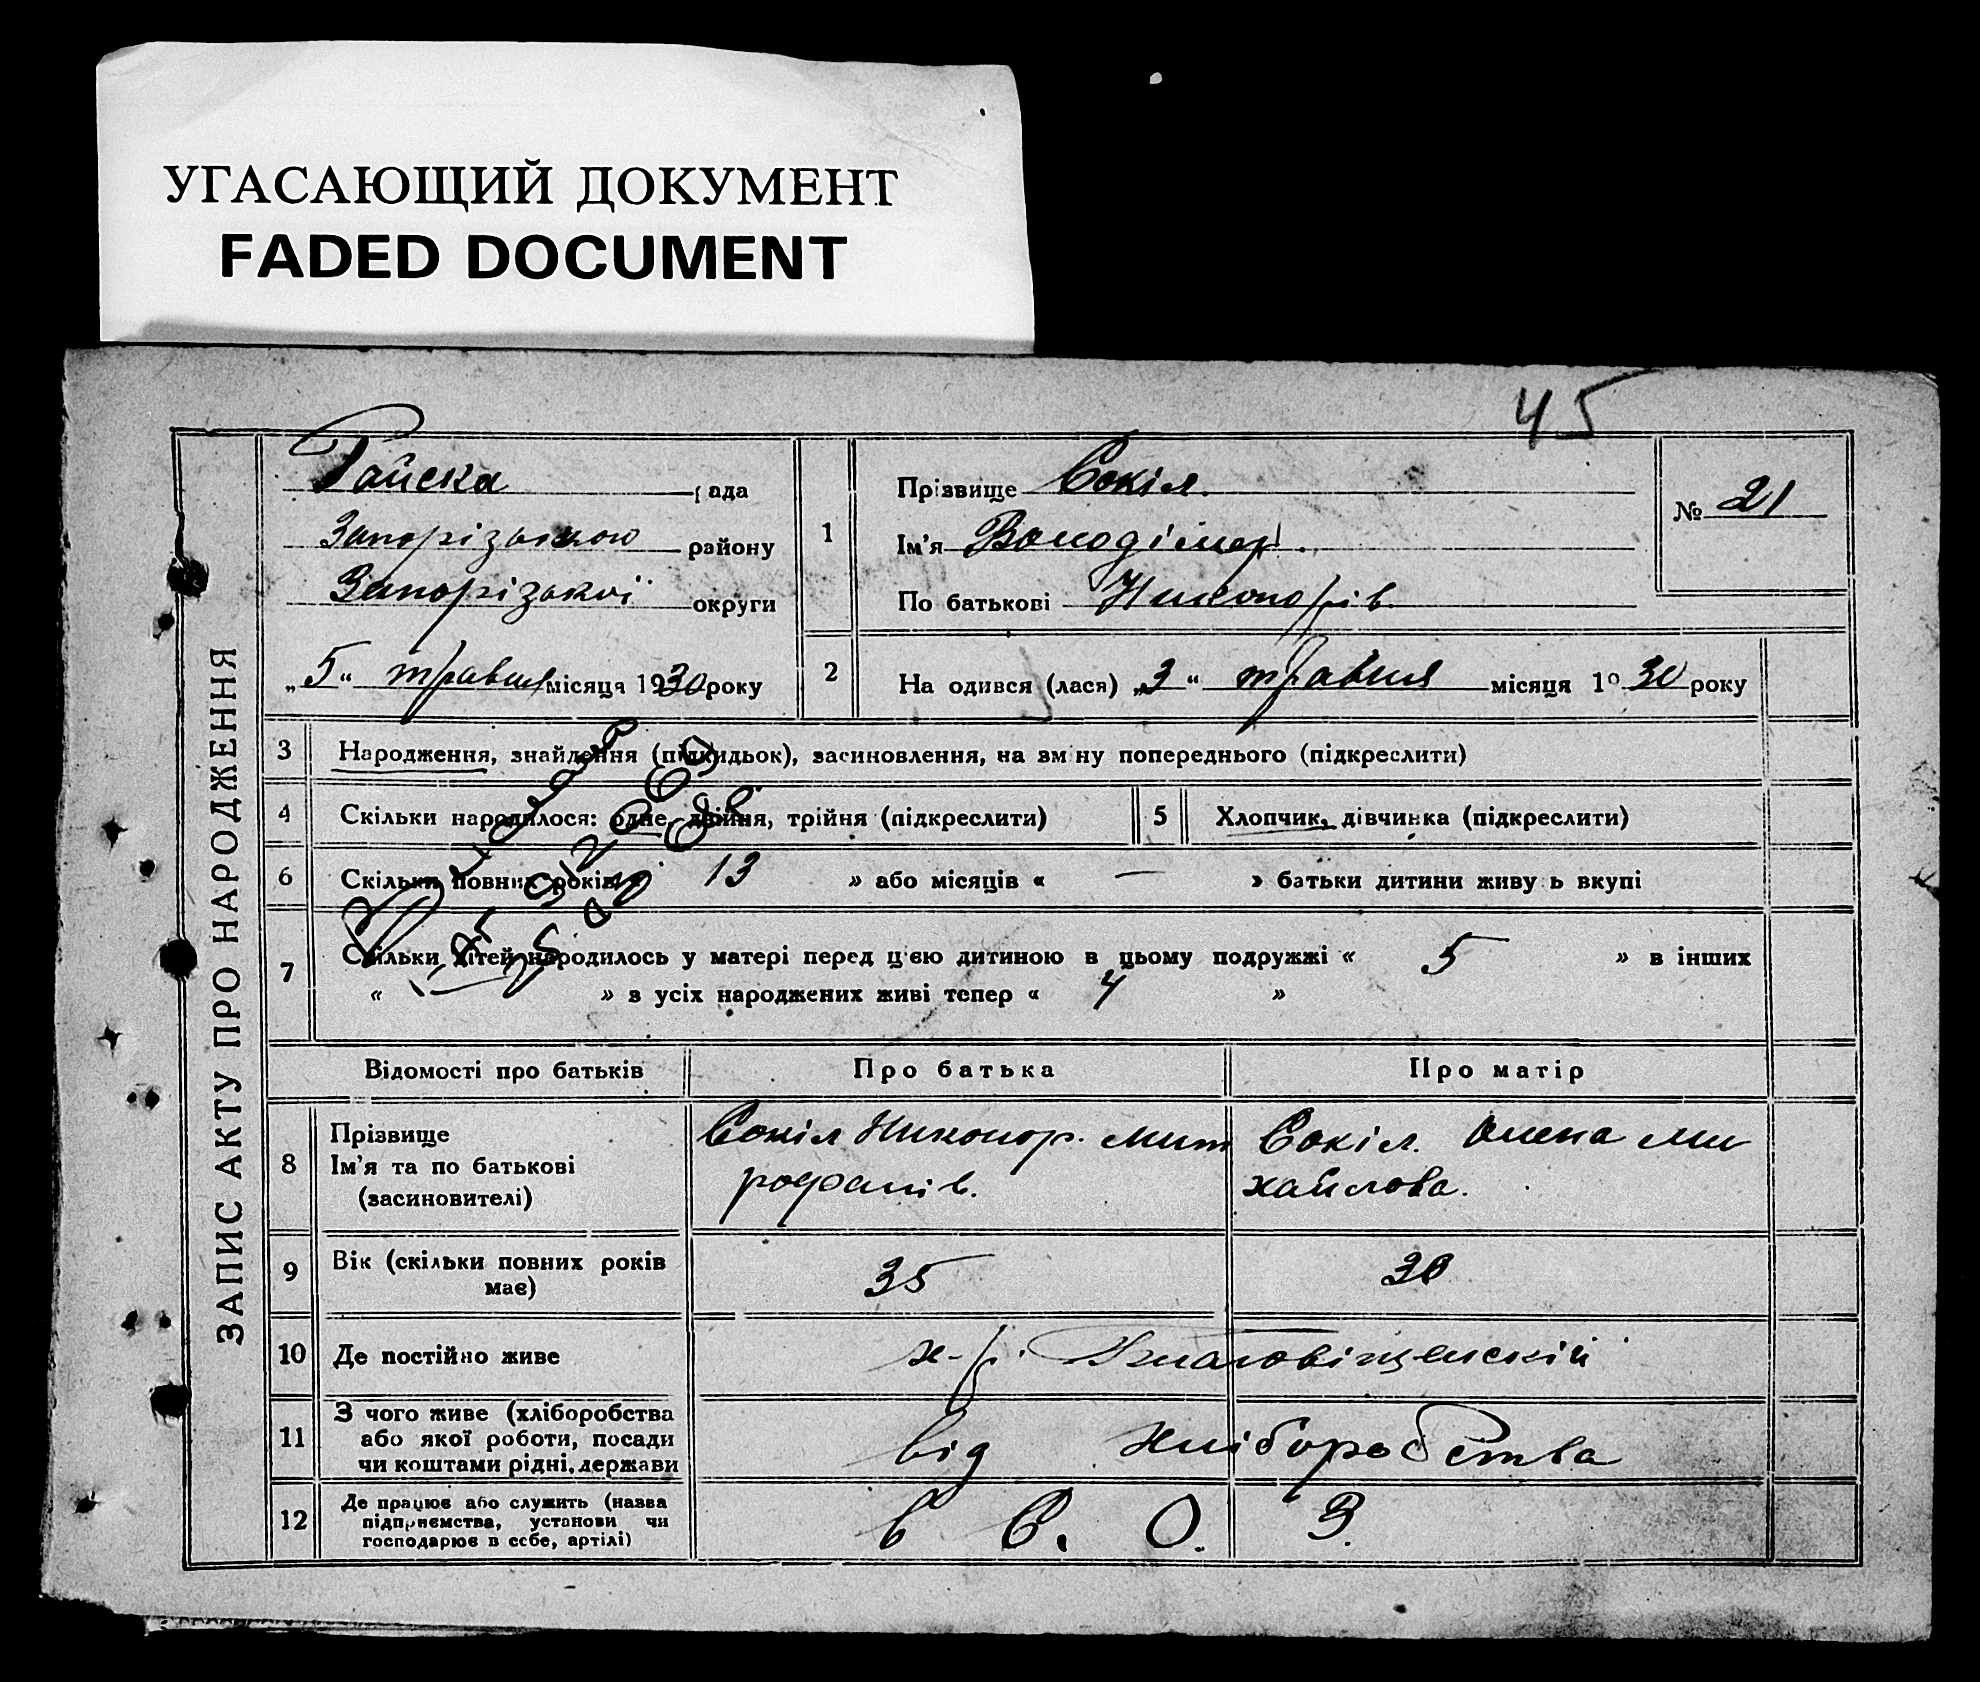 УГАСАЮЩИЙ ДОКУМЕНТ
FADED DOCUMENT
45
ЗАПИС АКТУ ПРО НАРОДЖЕННЯ
Райска рада
Запорізького району
Запорізької округи
„5“ травня місяця 1930 року
1
Прізвище Сокіл.
Ім'я Володімер.
По батькові Никонорів.
№ 21
2
На одився (лася) „3“ травня місяця 19 30 року
3 Народження, знайдення (підкидьок), засиновлення, на зм ну попереднього (підкреслити)
4 Скільки народилося: одне, двійня, трійня (підкреслити)
5 Хлопчик, дівчинка (підкреслити)
6 Скільки повних років « 13 » або місяців « — » батьки дитини живу ь вкупі
7 Скільки дітей народилось у матері перед цією дитиною в цьому подружжі « 5 » в інших
« — » з усіх народжених живі тепер « 4 »
Відомості про батьків Про батька Про матір
8
Прізвище
Ім'я та по батькові
(засиновителі)
Сокіл Никонор. Мит
рофанів.
Сокіл. Олена Ми
хайлова.
9 Вік (скільки повних років
має)
35
30
10 Де постійно живе х-р.
11 З чого живе (хліборобства
або якої роботи, посади
чи коштами рідні, держави
від хліборобства
12 Де працює або служить (назва
підприємства, установи чи
господарює в себе, артілі)
в С. О. З.